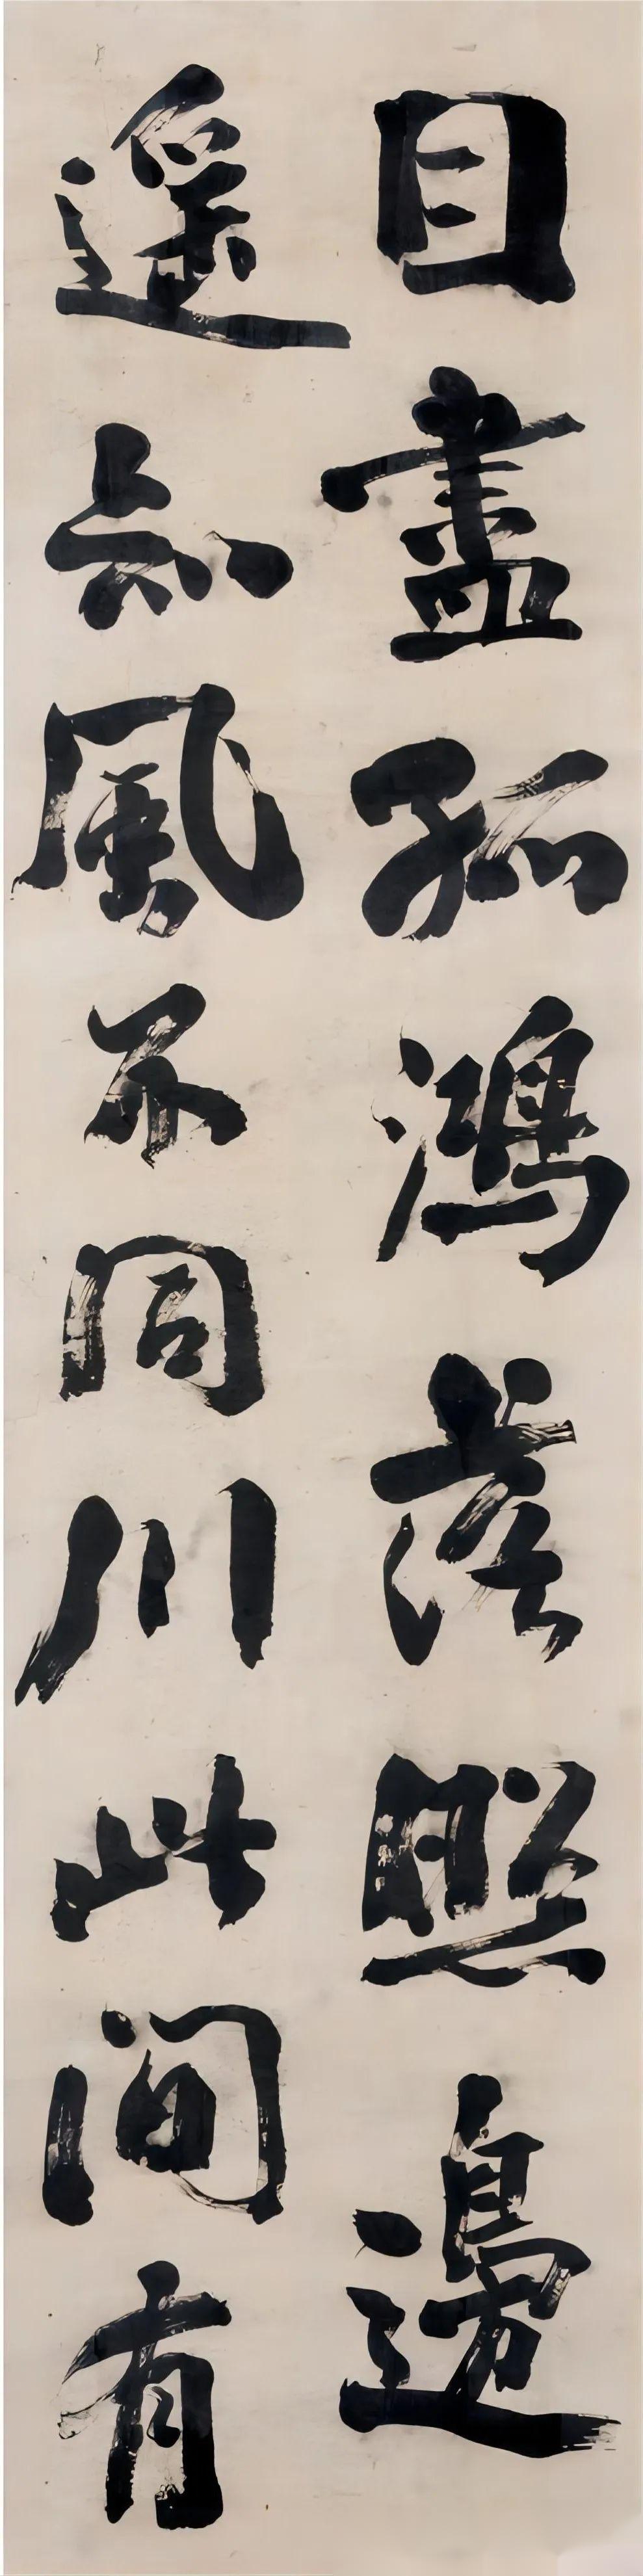 目盡孤鴻落照邊
遙知風不同川此間有